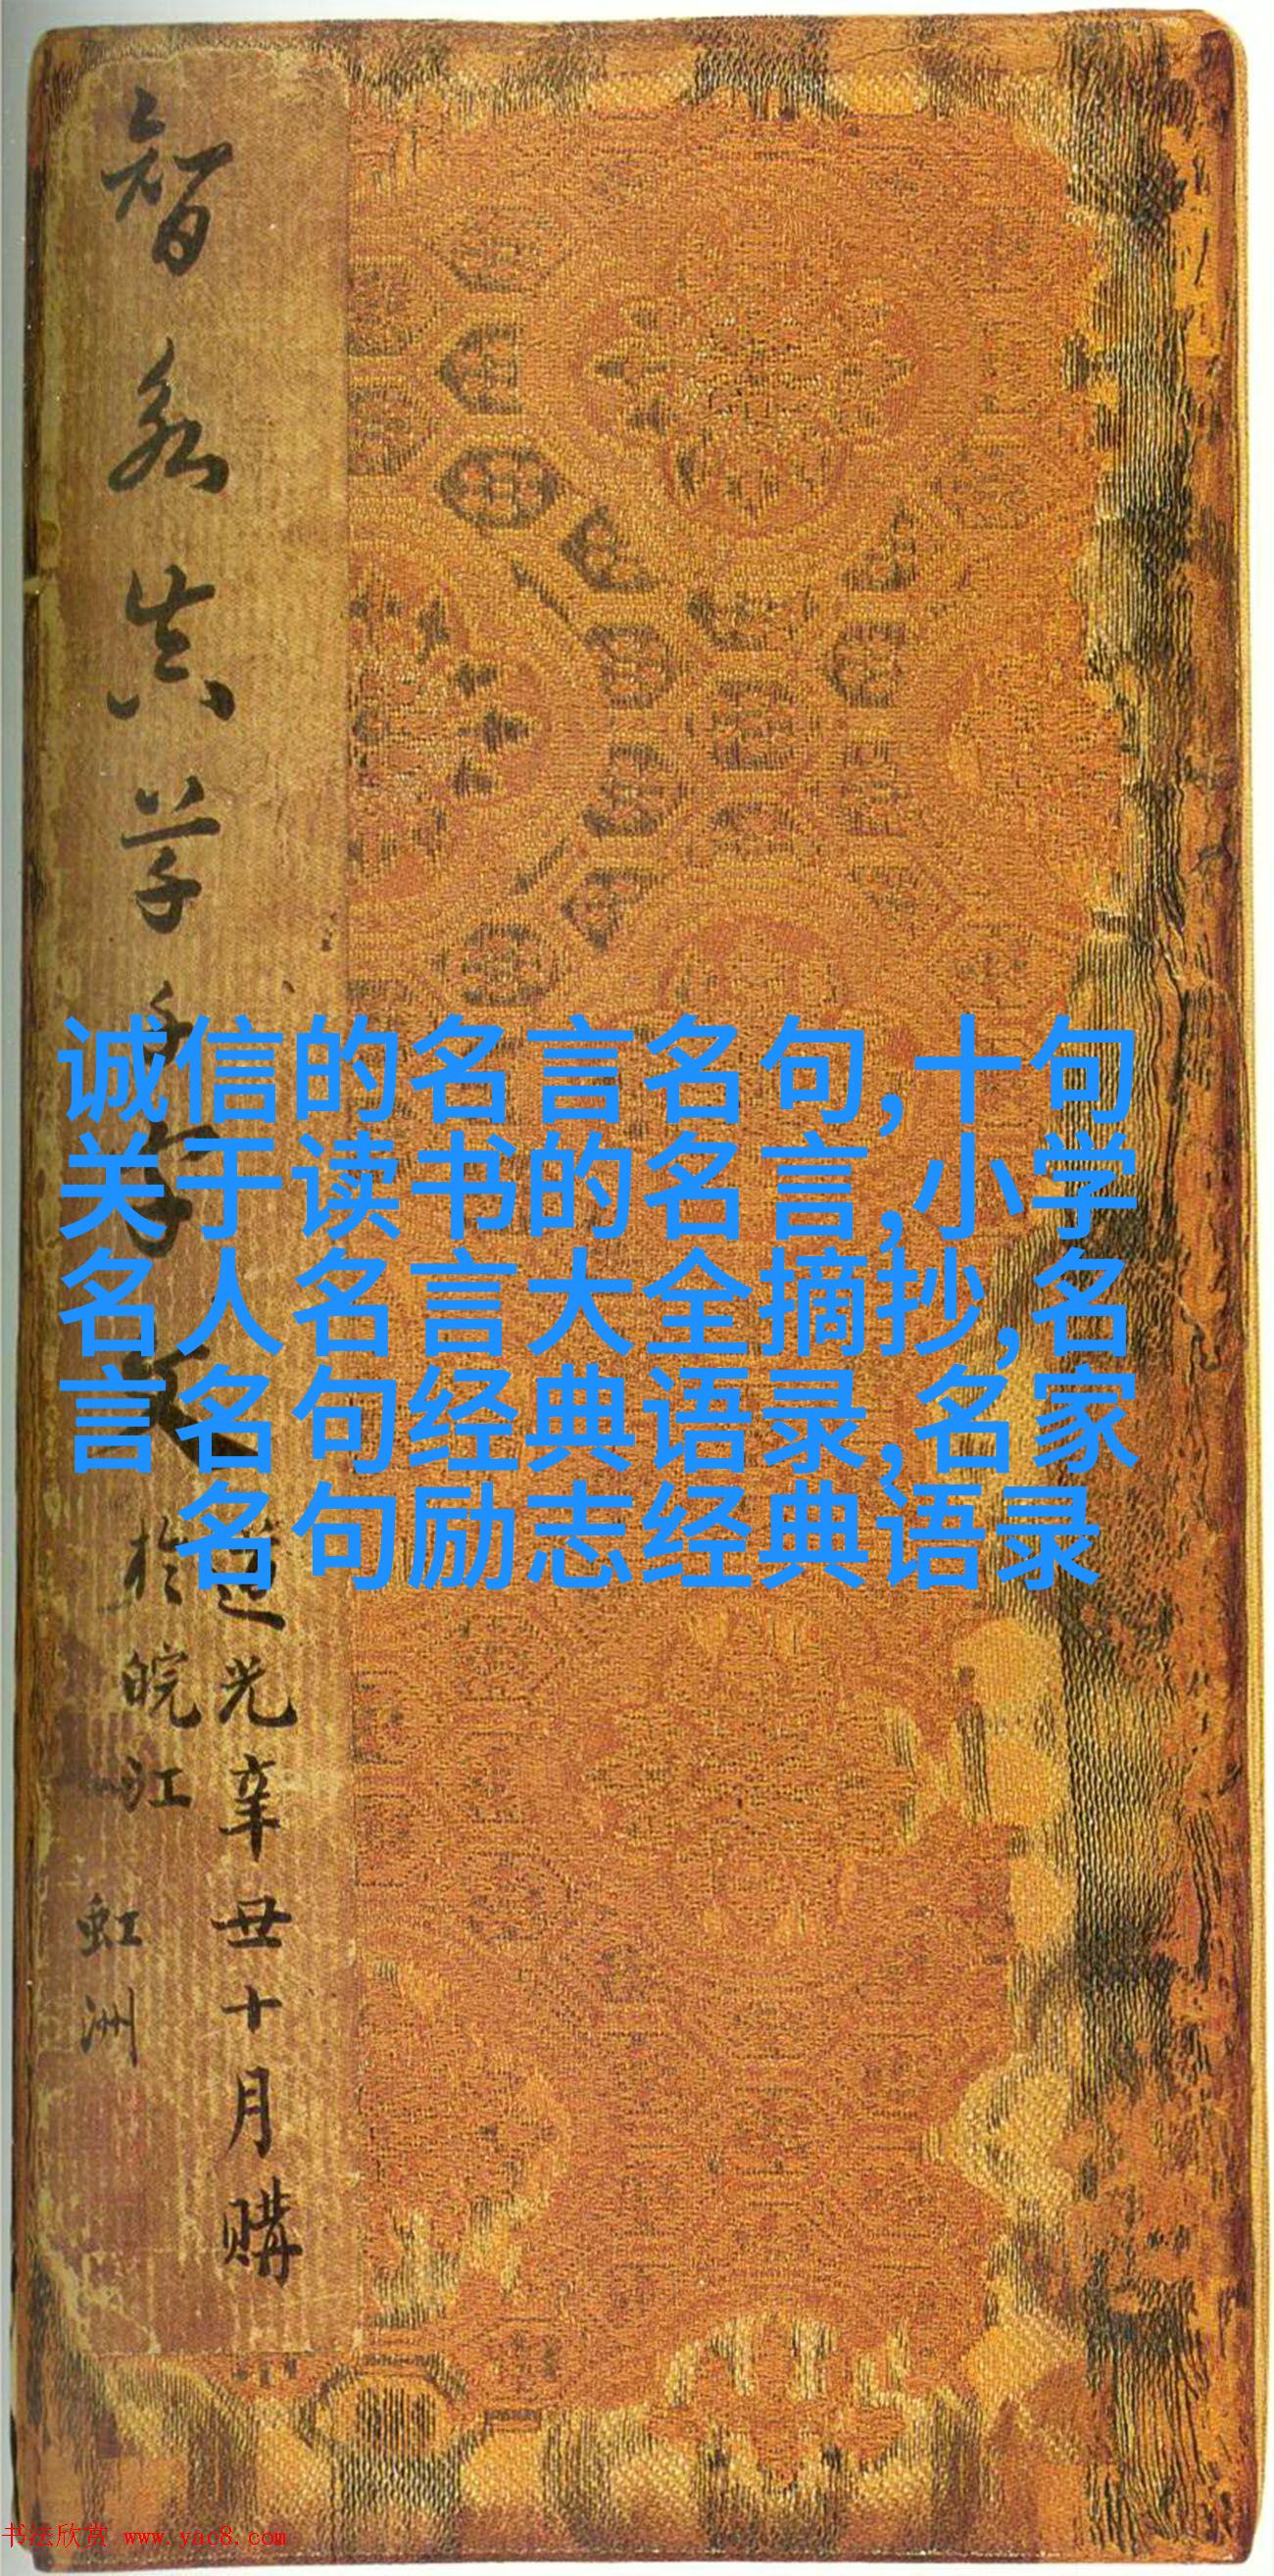 诚信的名言名句,十句
关于读书的名言,小学
名人名言大全摘抄,名
言名句经典语录,名家
名句励志经典语录
智永真草千字文
道光辛丑十月購
於皖江
虹洲
书法欣赏 www.yac8.com